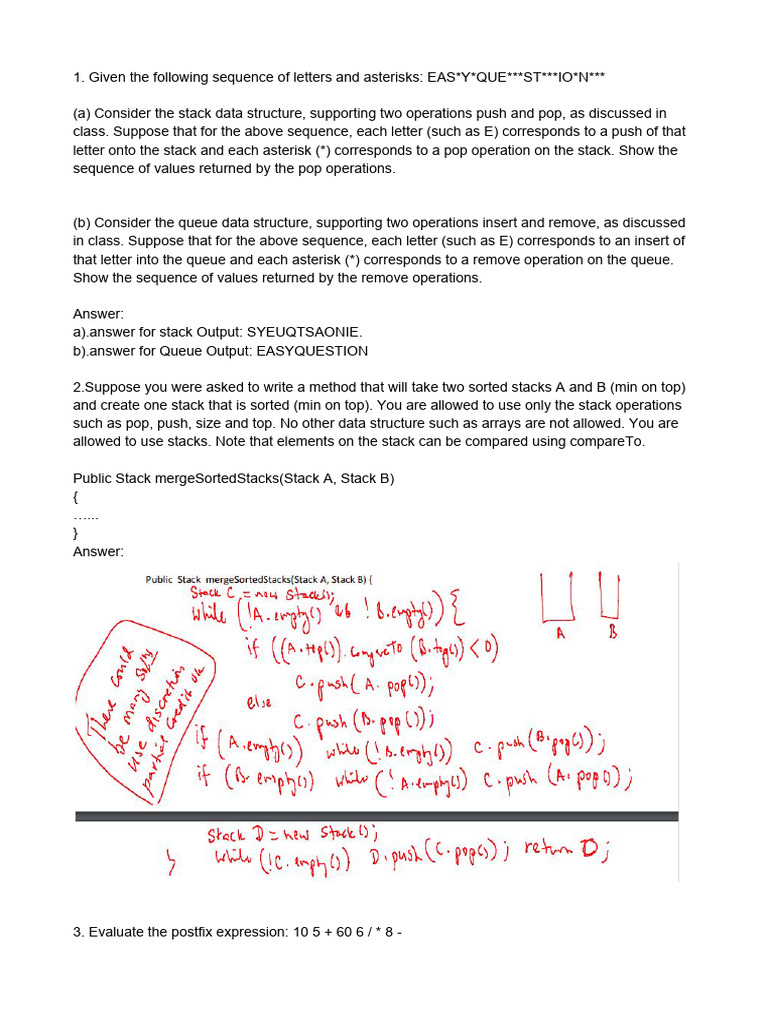 1. Given the following sequence of letters and asterisks: EAS*Y*QUE***ST***IO*N***
(a) Consider the stack data structure, supporting two operations push and pop, as discussed in
class. Suppose that for the above sequence, each letter (such as E) corresponds to a push of that
letter onto the stack and each asterisk (*) corresponds to a pop operation on the stack. Show the
sequence of values returned by the pop operations.
(b) Consider the queue data structure, supporting two operations insert and remove, as discussed
in class. Suppose that for the above sequence, each letter (such as E) corresponds to an insert of
that letter into the queue and each asterisk (*) corresponds to a remove operation on the queue.
Show the sequence of values returned by the remove operations.
Answer:
a).answer for stack Output: SYEUQTSAONIE.
b).answer for Queue Output: EASYQUESTION
2.Suppose you were asked to write a method that will take two sorted stacks A and B (min on top)
and create one stack that is sorted (min on top). You are allowed to use only the stack operations
such as pop, push, size and top. No other data structure such as arrays are not allowed. You are
allowed to use stacks. Note that elements on the stack can be compared using compareTo.
Public Stack mergeSortedStacks(Stack A, Stack B)
{
…...
}
Answer:
Public Stack mergeSortedStacks(Stack A, Stack B) {
Stack C = new Stack();
while (!A.empty() && !B.empty()) {
A B
if ((A.top()).compareTo (B.top()) < 0)
C.push( A.pop());
else
C.push (B.pop());
if (A.empty()) while (!B.empty()) C.push(B.pop());
if (B.empty()) while (!A.empty()) C.push (A.pop());
There could
be many sols
use discretion
partial credit ok
Stack D = new Stack();
} while (!C.empty()) D.push(C.pop()); return D;
3. Evaluate the postfix expression: 10 5 + 60 6 / * 8 -